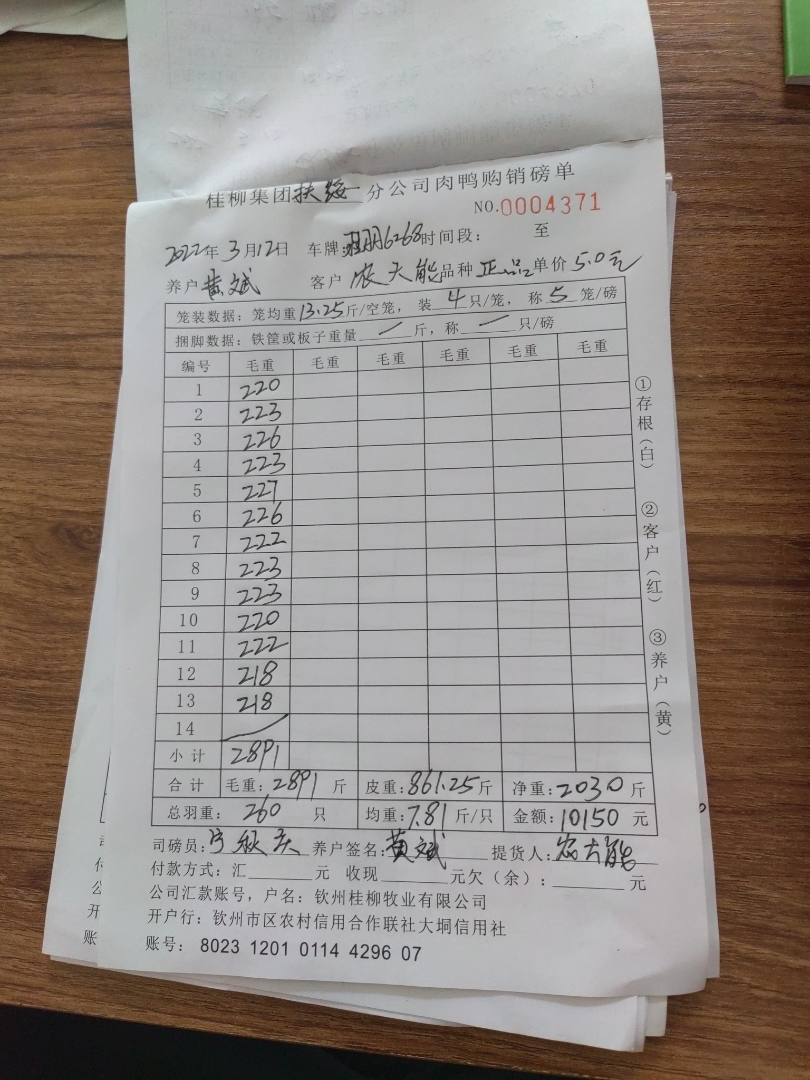 桂柳集团扶绥分公司肉鸭购销磅单
NO.0004371
2022年3月12日 车牌: 6268时间段: 至
养户黄斌 客户农天能品种正品单价5.0元
笼装数据: 笼均重13.25斤/空笼, 装4只/笼, 称5笼/磅
捆脚数据: 铁筐或板子重量/斤, 称/只/磅
编号 毛重 毛重 毛重 毛重 毛重 毛重
1 220
2 223
3 226
4 223
5 227
6 226
7 222
8 223
9 223
10 220
11 222
12 218
13 218
14
小计 2891
合计 毛重: 2891斤 皮重: 861.25斤 净重: 2030斤
总羽重: 260只 均重: 7.81斤/只 金额: 10150元
司磅员: 养户签名: 黄斌 提货人: 农天能
付款方式: 汇 元 收现 元欠(余): 元
公司汇款账号, 户名: 钦州桂柳牧业有限公司
开户行: 钦州市区农村信用合作联社大垌信用社
账号: 8023 1201 0114 4296 07
①存根(白) ②客户(红) ③养户(黄)